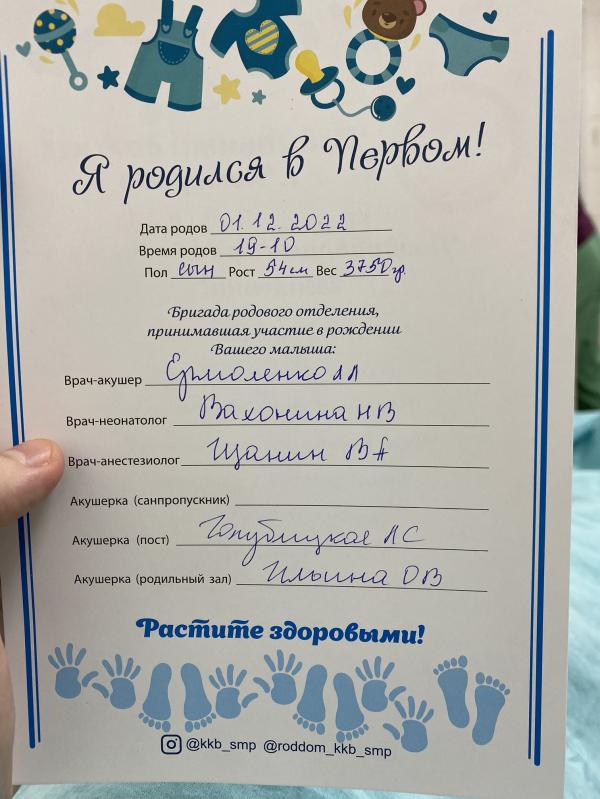 Я родился в Первом!
Дата родов 01.12.2022
Время родов 19-10
Пол сын Рост 54см Вес 3750гр.
Бригада родового отделения,
принимавшая участие в рождении
Вашего малыша:
Врач-акушер Ермоленко
Врач-неонатолог Вахонина НВ
Врач-анестезиолог Щанин ВА
Акушерка (санпропускник)
Акушерка (пост) Голубицкая ЛС
Акушерка (родильный зал) Ильина ОВ
Растите здоровыми!
@kkb_smp @roddom_kkb_smp